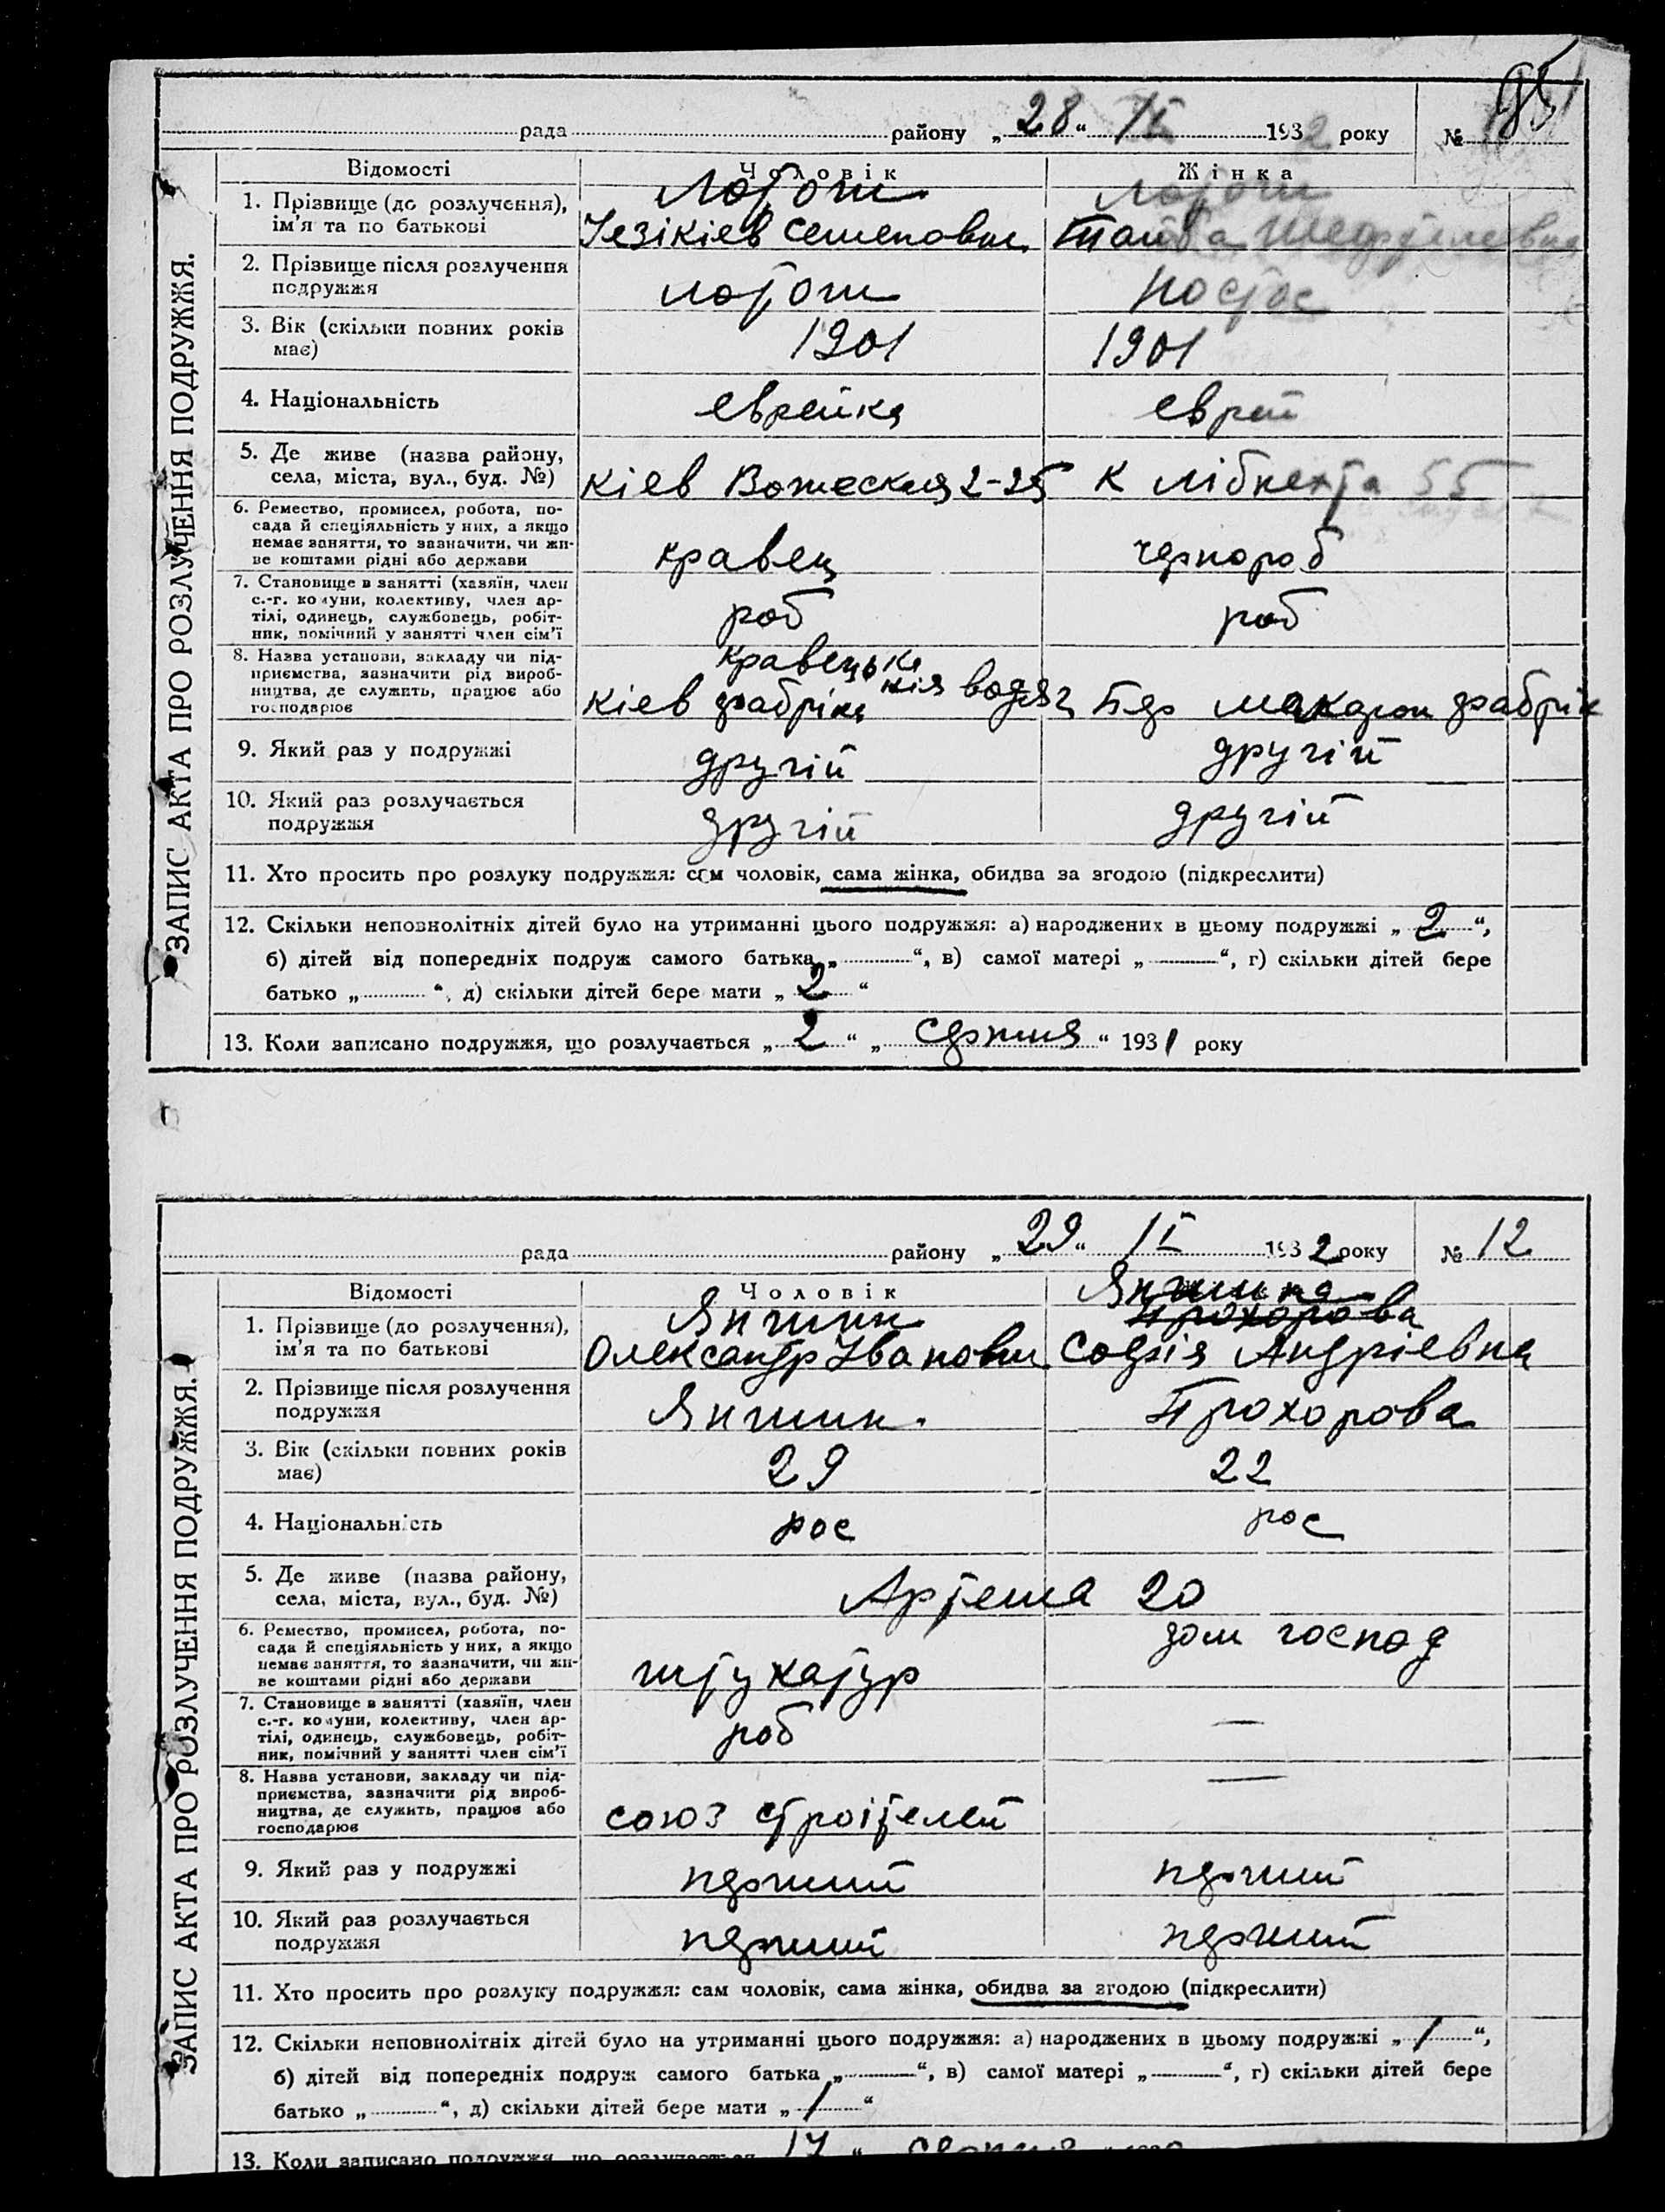 рада району „ 28 “ /I 1932 року №
ЗАПИС АКТА ПРО РОЗЛУЧЕННЯ ПОДРУЖЖЯ.
Відомості Чоловік Жінка
1. Прізвище (до розлучення), ім'я та по батькові
Семенович
2. Прізвище після розлучення подружжя
3. Вік (скільки повних років має) 1901 1901
4. Національність еврейка еврей
5. Де живе (назва району, села, міста, вул., буд. №) Кіев 2-25 К Лібкнехта 55
6. Ремество, промисел, робота, посада й спеціяльність у них, а якщо немає заняття, то зазначити, чи живе коштами рідні або держави кравец чернороб
7. Становище в занятті (хазяїн, член с.-г. комуни, колективу, член артілі, одинець, службовець, робітник, помічний у занятті член сім'ї роб роб
8. Назва установи, закладу чи підприємства, зазначити рід виробництва, де служить, працює або господарює Кіев кравецька фабріка макарон фабрік
9. Який раз у подружжі другій другій
10. Який раз розлучається подружжя другій другій
11. Хто просить про розлуку подружжя: сам чоловік, сама жінка, обидва за згодою (підкреслити)
12. Скільки неповнолітніх дітей було на утриманні цього подружжя: а) народжених в цьому подружжі „ 2 “,
б) дітей від попередніх подруж самого батька „ “, в) самої матері „ “, г) скільки дітей бере
батько „ “, д) скільки дітей бере мати „ 2 “
13. Коли записано подружжя, що розлучається „ 2 “ „ “ 1931 року
рада району „ 29 “ /I 1932 року № 12
ЗАПИС АКТА ПРО РОЗЛУЧЕННЯ ПОДРУЖЖЯ.
Відомості Чоловік
1. Прізвище (до розлучення), ім'я та по батькові Прохорова
Олександр Іванович Софія Андріевна
2. Прізвище після розлучення подружжя Прохорова
3. Вік (скільки повних років має) 29 22
4. Національність рос рос
5. Де живе (назва району, села, міста, вул., буд. №) Артема 20
6. Ремество, промисел, робота, посада й спеціяльність у них, а якщо немає заняття, то зазначити, чи живе коштами рідні або держави штукатур дом господ
7. Становище в занятті (хазяїн, член с.-г. комуни, колективу, член артілі, одинець, службовець, робітник, помічний у занятті член сім'ї роб —
8. Назва установи, закладу чи підприємства, зазначити рід виробництва, де служить, працює або господарює союз строітелей —
9. Який раз у подружжі перший перший
10. Який раз розлучається подружжя перший перший
11. Хто просить про розлуку подружжя: сам чоловік, сама жінка, обидва за згодою (підкреслити)
12. Скільки неповнолітніх дітей було на утриманні цього подружжя: а) народжених в цьому подружжі „ 1 “,
б) дітей від попередніх подруж самого батька „ “, в) самої матері „ “, г) скільки дітей бере
батько „ “, д) скільки дітей бере мати „ 1 “
13. Коли записано подружжя, що розлучається 17